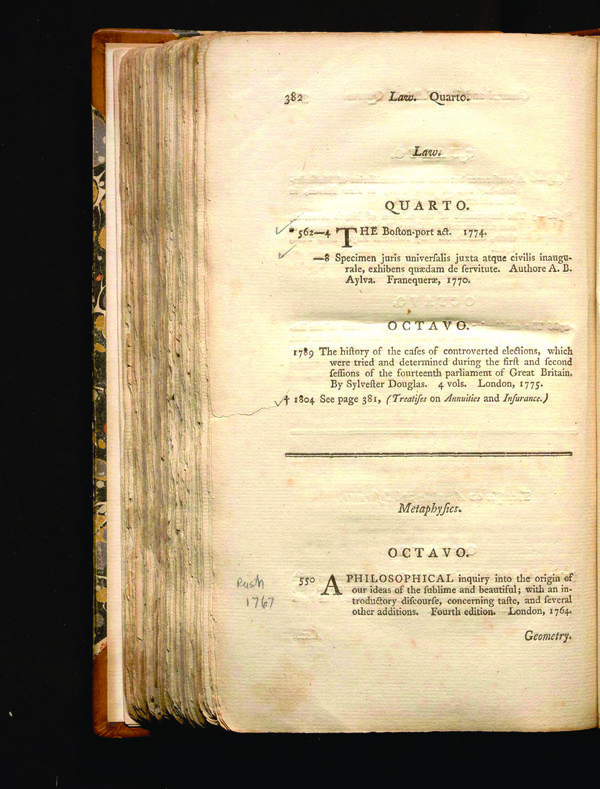 382 Law. Quarto.
Law.
QUARTO.
* 562—4 THE Boſton-port act. 1774.
—8 Specimen juris univerſalis juxta atque civilis inaugu-
rale, exhibens quædam de ſervitute. Authore A. B.
Aylva. Franequeræ, 1770.
OCTAVO.
1789 The hiſtory of the caſes of controverted elections, which
were tried and determined during the firſt and second
ſeſſions of the fourteenth parliament of Great Britain.
By Sylveſter Douglas. 4 vols. London, 1775.
† 1804 See page 381, (Treatiſes on Annuities and Inſurance.)
Metaphyſics.
OCTAVO.
Rush
1767
550 A PHILOSOPHICAL inquiry into the origin of
our ideas of the ſublime and beautiful; with an in-
troductory diſcourſe, concerning taſte, and ſeveral
other additions. Fourth edition. London, 1764.
Geometry.